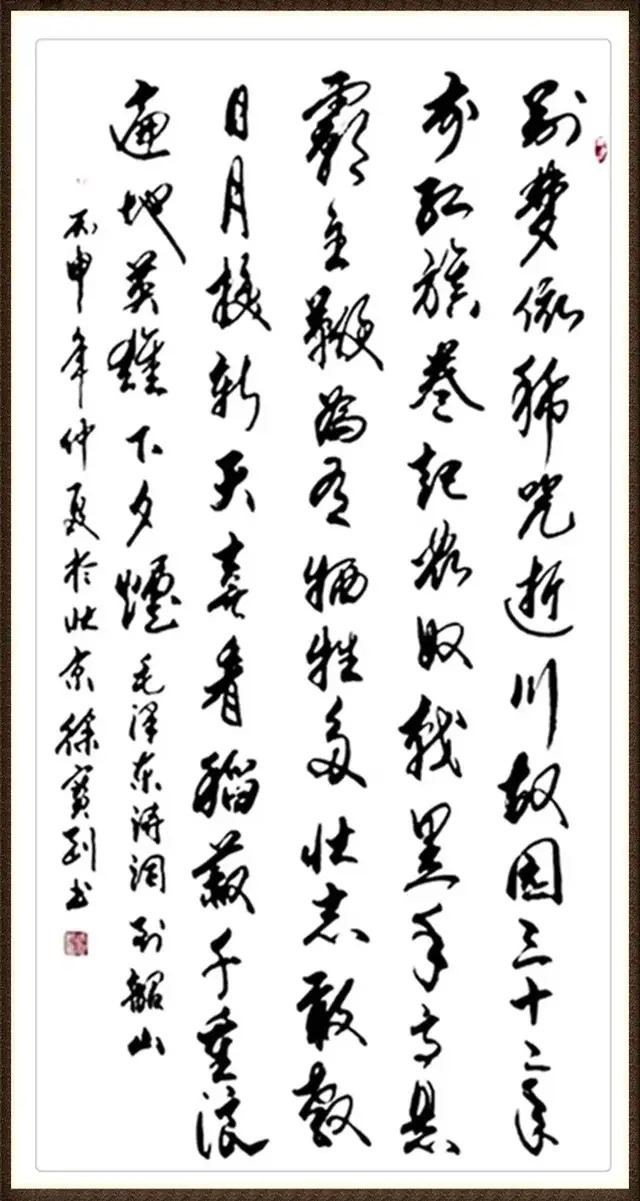 别夢依稀咒逝川故园三十二年
前红旗卷起农奴戟黑手高悬
霸主鞭為有牺牲多壮志敢教
日月换新天喜看稻菽千重浪
遍地英雄下夕煙 毛泽东诗词 到韶山
丙申年仲夏於北京徐寶书